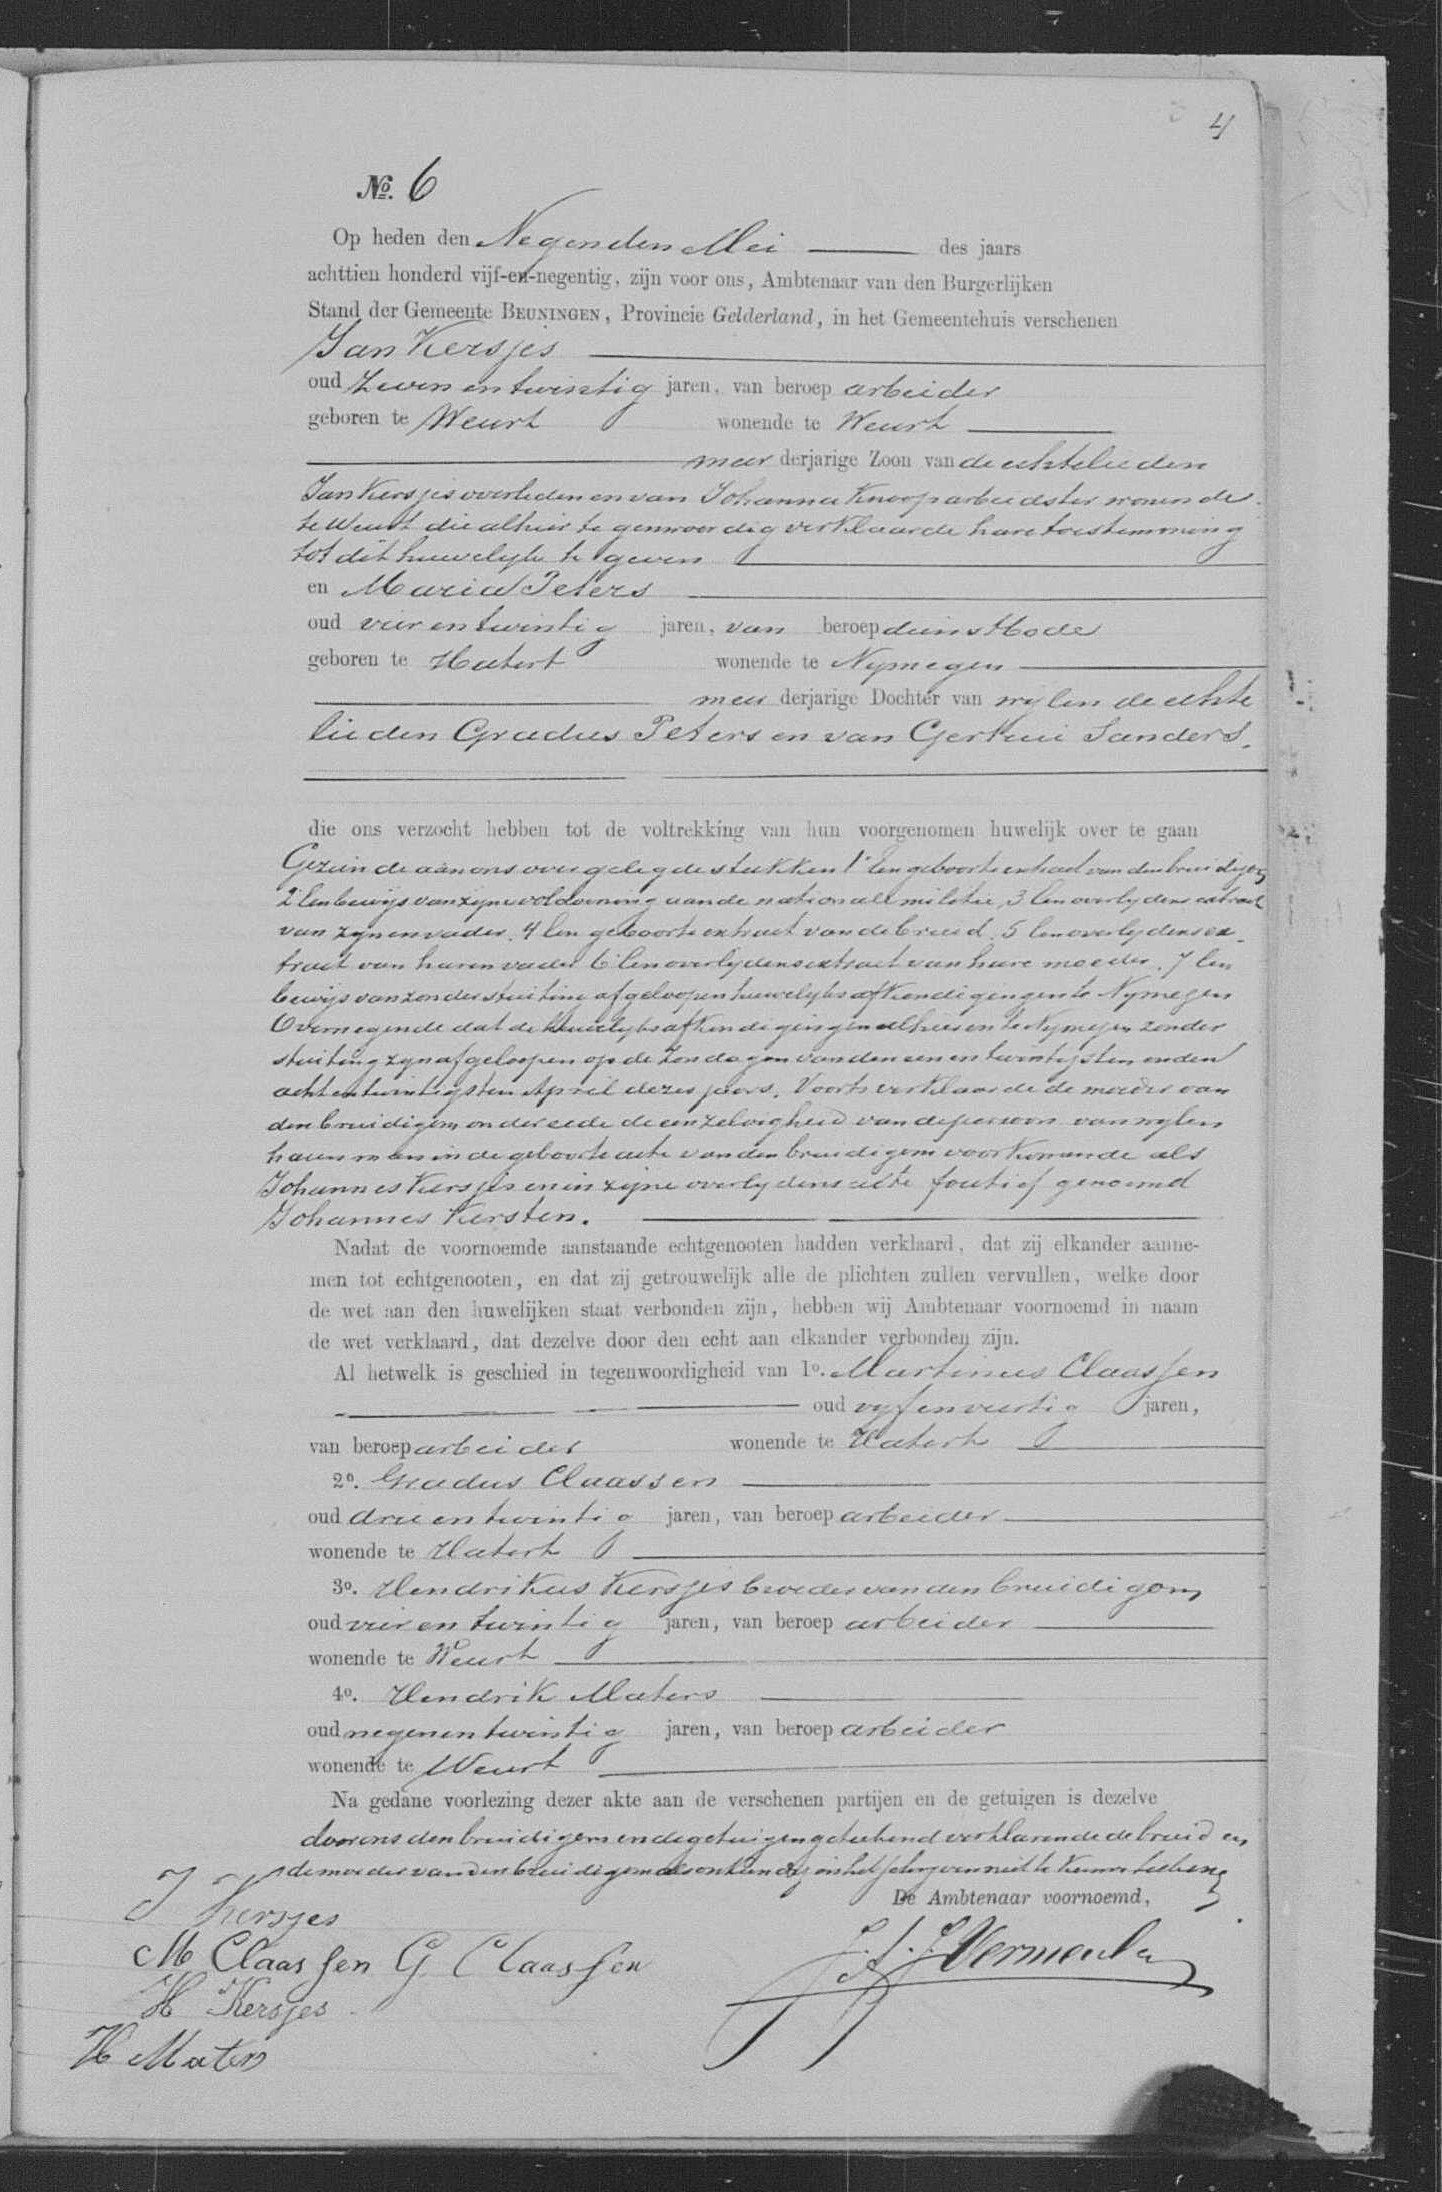 4
No. 6
Op heden den Negenden Mei des jaars
achttien honderd vijf-en-negentig, zijn voor ons, Ambtenaar van den Burgerlijken
Stand der Gemeente BEUNINGEN, Provincie Gelderland, in het Gemeentehuis verschenen
Jan Kersjes
oud zeven en twintig jaren, van beroep arbeider
geboren te Weurt wonende te Weurt
meer derjarige Zoon van de echtelieden
Jan Kersjes overleden en van Johanna Knoop arbeidster wonende
te Weurt die alhier tegenwoordig verklaarde hare toestemming
tot dit huwelijk te geven
en Maria Peters
oud vier en twintig jaren, van beroep dienstbode
geboren te Hatert wonende te Nymegen
meer derjarige Dochter van wylen de echte
lieden Gradus Peters en van Gertrui Sanders.
die ons verzocht hebben tot de voltrekking van hun voorgenomen huwelijk over te gaan
Gezien de aan ons overgelegde stukken 1° Een geboorte extract van den bruidegom
2 Een bewys van zyne voldoening aan de nationale militie, 3 Een overlydens extract
van zynen vader. 4 Een geboorte extract van de bruid. 5 Een overlydens ex-
tract van haren vader 6° Een overlydens extract van hare moeder. 7 Een
bewys van zonder stuiting afgeloopen huwelyks afkondigingen te Nymegen
Overwegende dat de huwelyks afkondigingen alhier en te Nymegen zonder
stuiting zyn afgeloopen op de Zondagen van den een en twintigsten en den
acht en twintigsten April dezes jaars. Voorts verklaarde de moeder van
den bruidigom onder eede de eenzelvigheid van de persoon van wylen
haren man in de geboorte acte van den bruidigom voorkomende als
Johannes Kersjes en in zyne overlydens acte foutief genoemd
Johannes Kersten.
Nadat de voornoemde aanstaande echtgenooten hadden verklaard, dat zij elkander aanne-
men tot echtgenooten, en dat zij getrouwelijk alle de plichten zullen vervullen, welke door
de wet aan den huwelijken staat verbonden zijn, hebben wij Ambtenaar voornoemd in naam
de wet verklaard, dat dezelve door den echt aan elkander verbonden zijn.
Al hetwelk is geschied in tegenwoordigheid van 1o. Martinus Claassen
oud vyf en veertig jaren,
van beroep arbeider wonende te Hatert
2o. Gradus Claassen
oud drie en twintig jaren, van beroep arbeider
wonende te Hatert
3o. Hendrikus Kersjes broeder van den bruidigom
oud vier en twintig jaren, van beroep arbeider
wonende te Weurt
4o. Hendrik Maters
oud negen en twintig jaren, van beroep arbeider
wonende te Weurt
Na gedane voorlezing dezer akte aan de verschenen partijen en de getuigen is dezelve
door ons den bruidigom en de getuigen geteekend verklarende de bruid en
de moeder van den bruidigom als onkundig in het schryven niet te kunnen teekenen
De Ambtenaar voornoemd,
J Kersjes
M Claassen G Claassen
H Kersjes
H Maters
Vermeulen